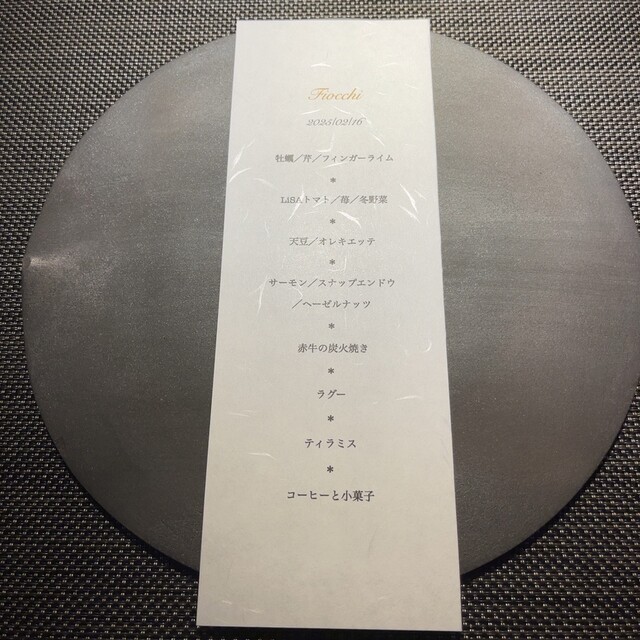 Fiocchi
2025/02/16
牡蠣／芹／フィンガーライム
*
LISAトマト／苺／冬野菜
*
天豆／オレキエッテ
*
サーモン／スナップエンドウ
／ヘーゼルナッツ
*
赤牛の炭火焼き
*
ラグー
*
ティラミス
*
コーヒーと小菓子